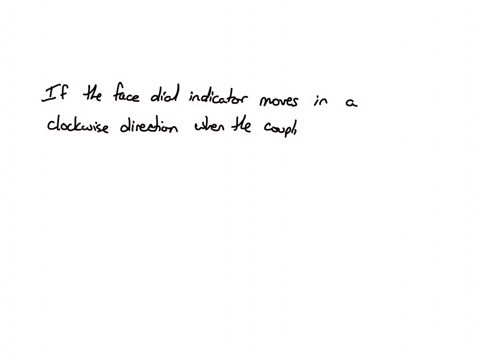 If the face dial indicator moves in a
clockwise direction when the coupl